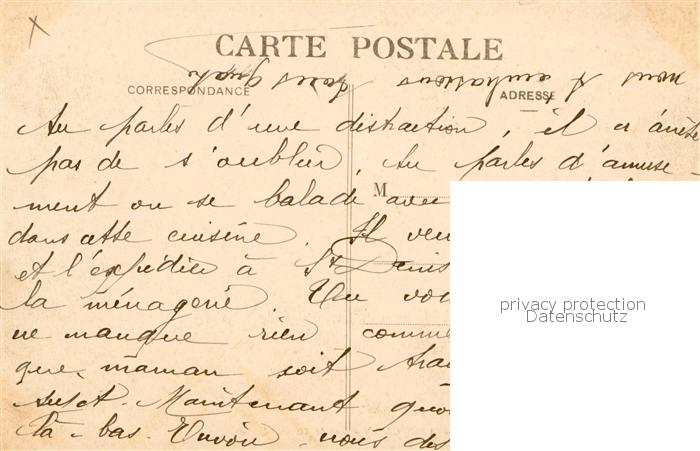 CARTE POSTALE
CORRESPONDANCE
ADRESSE
Tu parles d'une distraction, il n'arrête
pas de s'oublier. Tu parles d'amuse-
ment on se balade avec
M
dans cette cuisine. Il
et l'expédier à St Denis
la ménagerie. Tu
ne manque rien comme
que maman soit
sujet. Maintenant
là-bas. Envoie-nous des
nous t'embrassons
privacy protection
Datenschutz